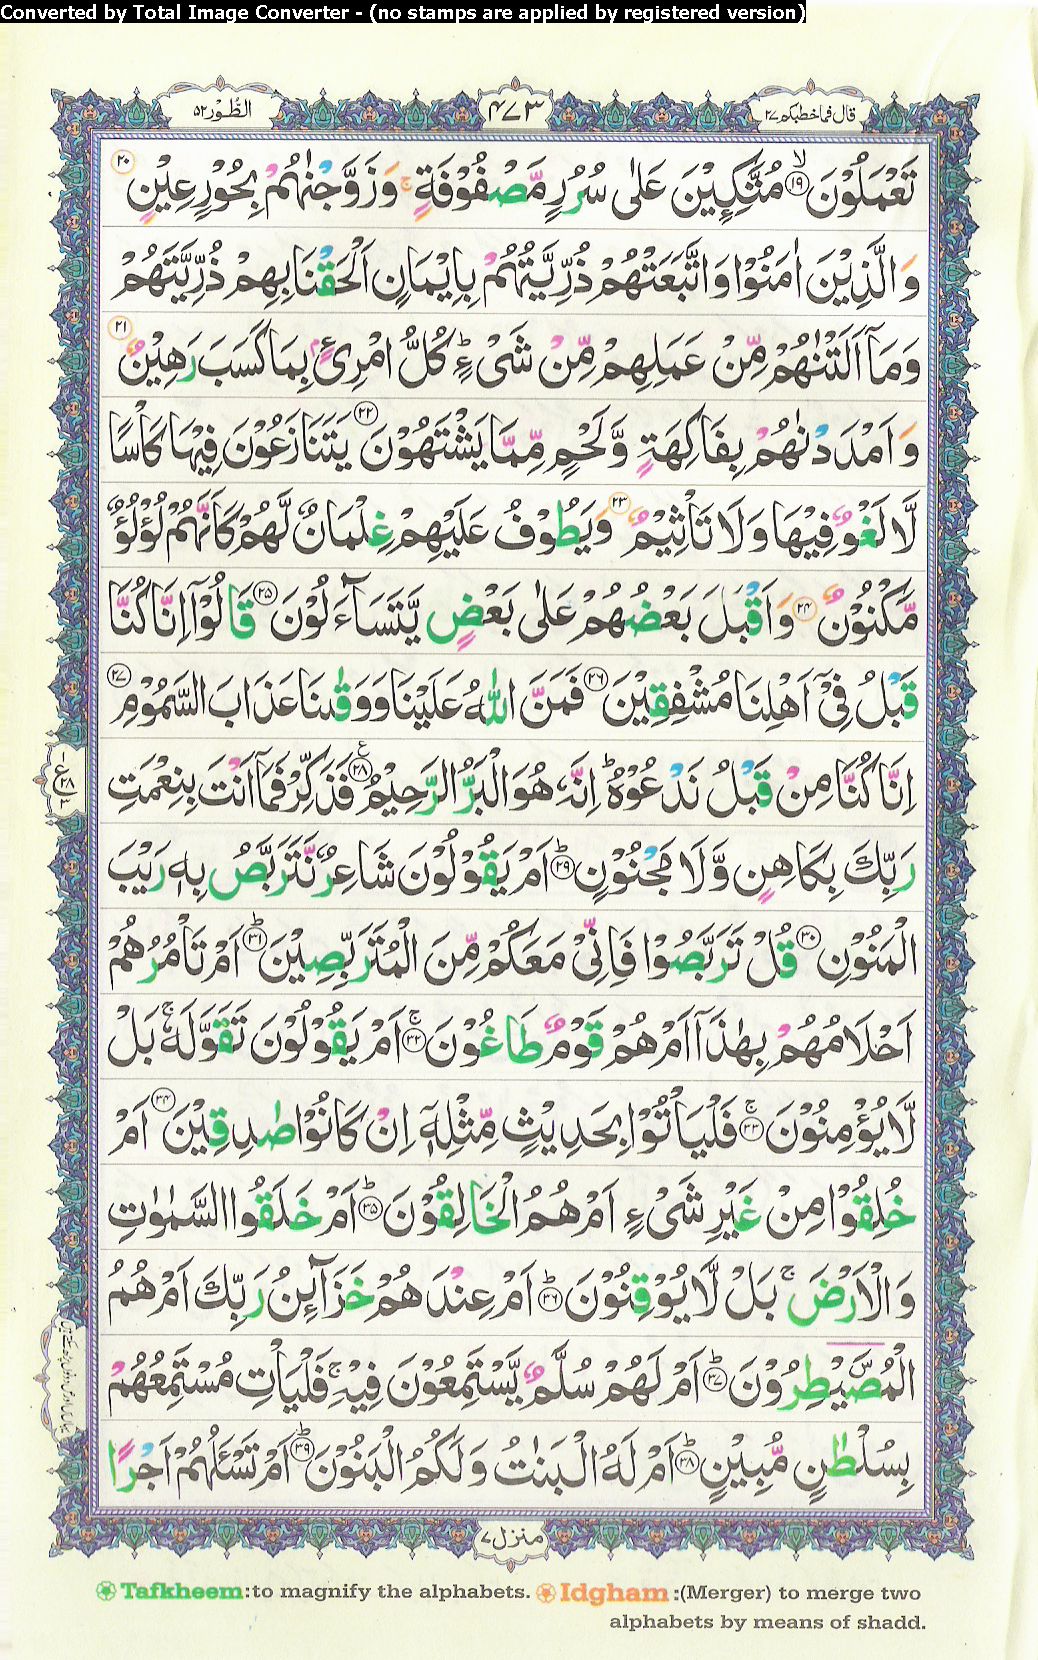 Converted by Total Image Converter - (no stamps are applied by registered version)
قَالَ فَمَا خَطْبُكُمْ ٢٧
٤٧٣
الطُّوْر ٥٢
تَعْمَلُوْنَ ۙ﴿١٩﴾ مُتَّكِـِٕيْنَ عَلٰى سُرُرٍ مَّصْفُوْفَةٍ ۚ وَزَوَّجْنٰهُمْ بِحُوْرٍ عِيْنٍ ﴿٢٠﴾
وَالَّذِيْنَ اٰمَنُوْا وَاتَّبَعَتْهُمْ ذُرِّيَّتُهُمْ بِاِيْمَانٍ اَلْحَقْنَا بِهِمْ ذُرِّيَّتَهُمْ
وَمَآ اَلَتْنٰهُمْ مِّنْ عَمَلِهِمْ مِّنْ شَيْءٍ ؕ كُلُّ امْرِئٍۭ بِمَا كَسَبَ رَهِيْنٌ ﴿٢١﴾
وَاَمْدَدْنٰهُمْ بِفَاكِهَةٍ وَّلَحْمٍ مِّمَّا يَشْتَهُوْنَ ﴿٢٢﴾ يَتَنَازَعُوْنَ فِيْهَا كَاْسًا
لَّا لَغْوٌ فِيْهَا وَلَا تَاْثِيْمٌ ﴿٢٣﴾ وَيَطُوْفُ عَلَيْهِمْ غِلْمَانٌ لَّهُمْ كَاَنَّهُمْ لُؤْلُؤٌ
مَّكْنُوْنٌ ﴿٢٤﴾ وَاَقْبَلَ بَعْضُهُمْ عَلٰى بَعْضٍ يَّتَسَآءَلُوْنَ ﴿٢٥﴾ قَالُوْٓا اِنَّا كُنَّا
قَبْلُ فِيْٓ اَهْلِنَا مُشْفِقِيْنَ ﴿٢٦﴾ فَمَنَّ اللّٰهُ عَلَيْنَا وَوَقٰىنَا عَذَابَ السَّمُوْمِ ﴿٢٧﴾
اِنَّا كُنَّا مِنْ قَبْلُ نَدْعُوْهُ ؕ اِنَّهٗ هُوَ الْبَرُّ الرَّحِيْمُ ﴿٢٨﴾ ع فَذَكِّرْ فَمَآ اَنْتَ بِنِعْمَتِ
رَبِّكَ بِكَاهِنٍ وَّلَا مَجْنُوْنٍ ؕ﴿٢٩﴾ اَمْ يَقُوْلُوْنَ شَاعِرٌ نَّتَرَبَّصُ بِهٖ رَيْبَ
الْمَنُوْنِ ﴿٣٠﴾ قُلْ تَرَبَّصُوْا فَاِنِّيْ مَعَكُمْ مِّنَ الْمُتَرَبِّصِيْنَ ؕ﴿٣١﴾ اَمْ تَاْمُرُهُمْ
اَحْلَامُهُمْ بِهٰذَآ اَمْ هُمْ قَوْمٌ طَاغُوْنَ ۚ﴿٣٢﴾ اَمْ يَقُوْلُوْنَ تَقَوَّلَهٗ ۚ بَلْ
لَّا يُؤْمِنُوْنَ ۚ﴿٣٣﴾ فَلْيَاْتُوْا بِحَدِيْثٍ مِّثْلِهٖٓ اِنْ كَانُوْا صٰدِقِيْنَ ﴿٣٤﴾ اَمْ
خُلِقُوْا مِنْ غَيْرِ شَيْءٍ اَمْ هُمُ الْخَالِقُوْنَ ؕ﴿٣٥﴾ اَمْ خَلَقُوا السَّمٰوٰتِ
وَالْاَرْضَ ۚ بَلْ لَّا يُوْقِنُوْنَ ؕ﴿٣٦﴾ اَمْ عِنْدَهُمْ خَزَآئِنُ رَبِّكَ اَمْ هُمُ
الْمُصَۜيْطِرُوْنَ ؕ﴿٣٧﴾ اَمْ لَهُمْ سُلَّمٌ يَّسْتَمِعُوْنَ فِيْهِ ۚ فَلْيَاْتِ مُسْتَمِعُهُمْ
بِسُلْطٰنٍ مُّبِيْنٍ ؕ﴿٣٨﴾ اَمْ لَهُ الْبَنٰتُ وَلَكُمُ الْبَنُوْنَ ؕ﴿٣٩﴾ اَمْ تَسْـَٔلُهُمْ اَجْرًا
منزل ٧
Tafkheem:to magnify the alphabets. Idgham :(Merger) to merge two
alphabets by means of shadd.